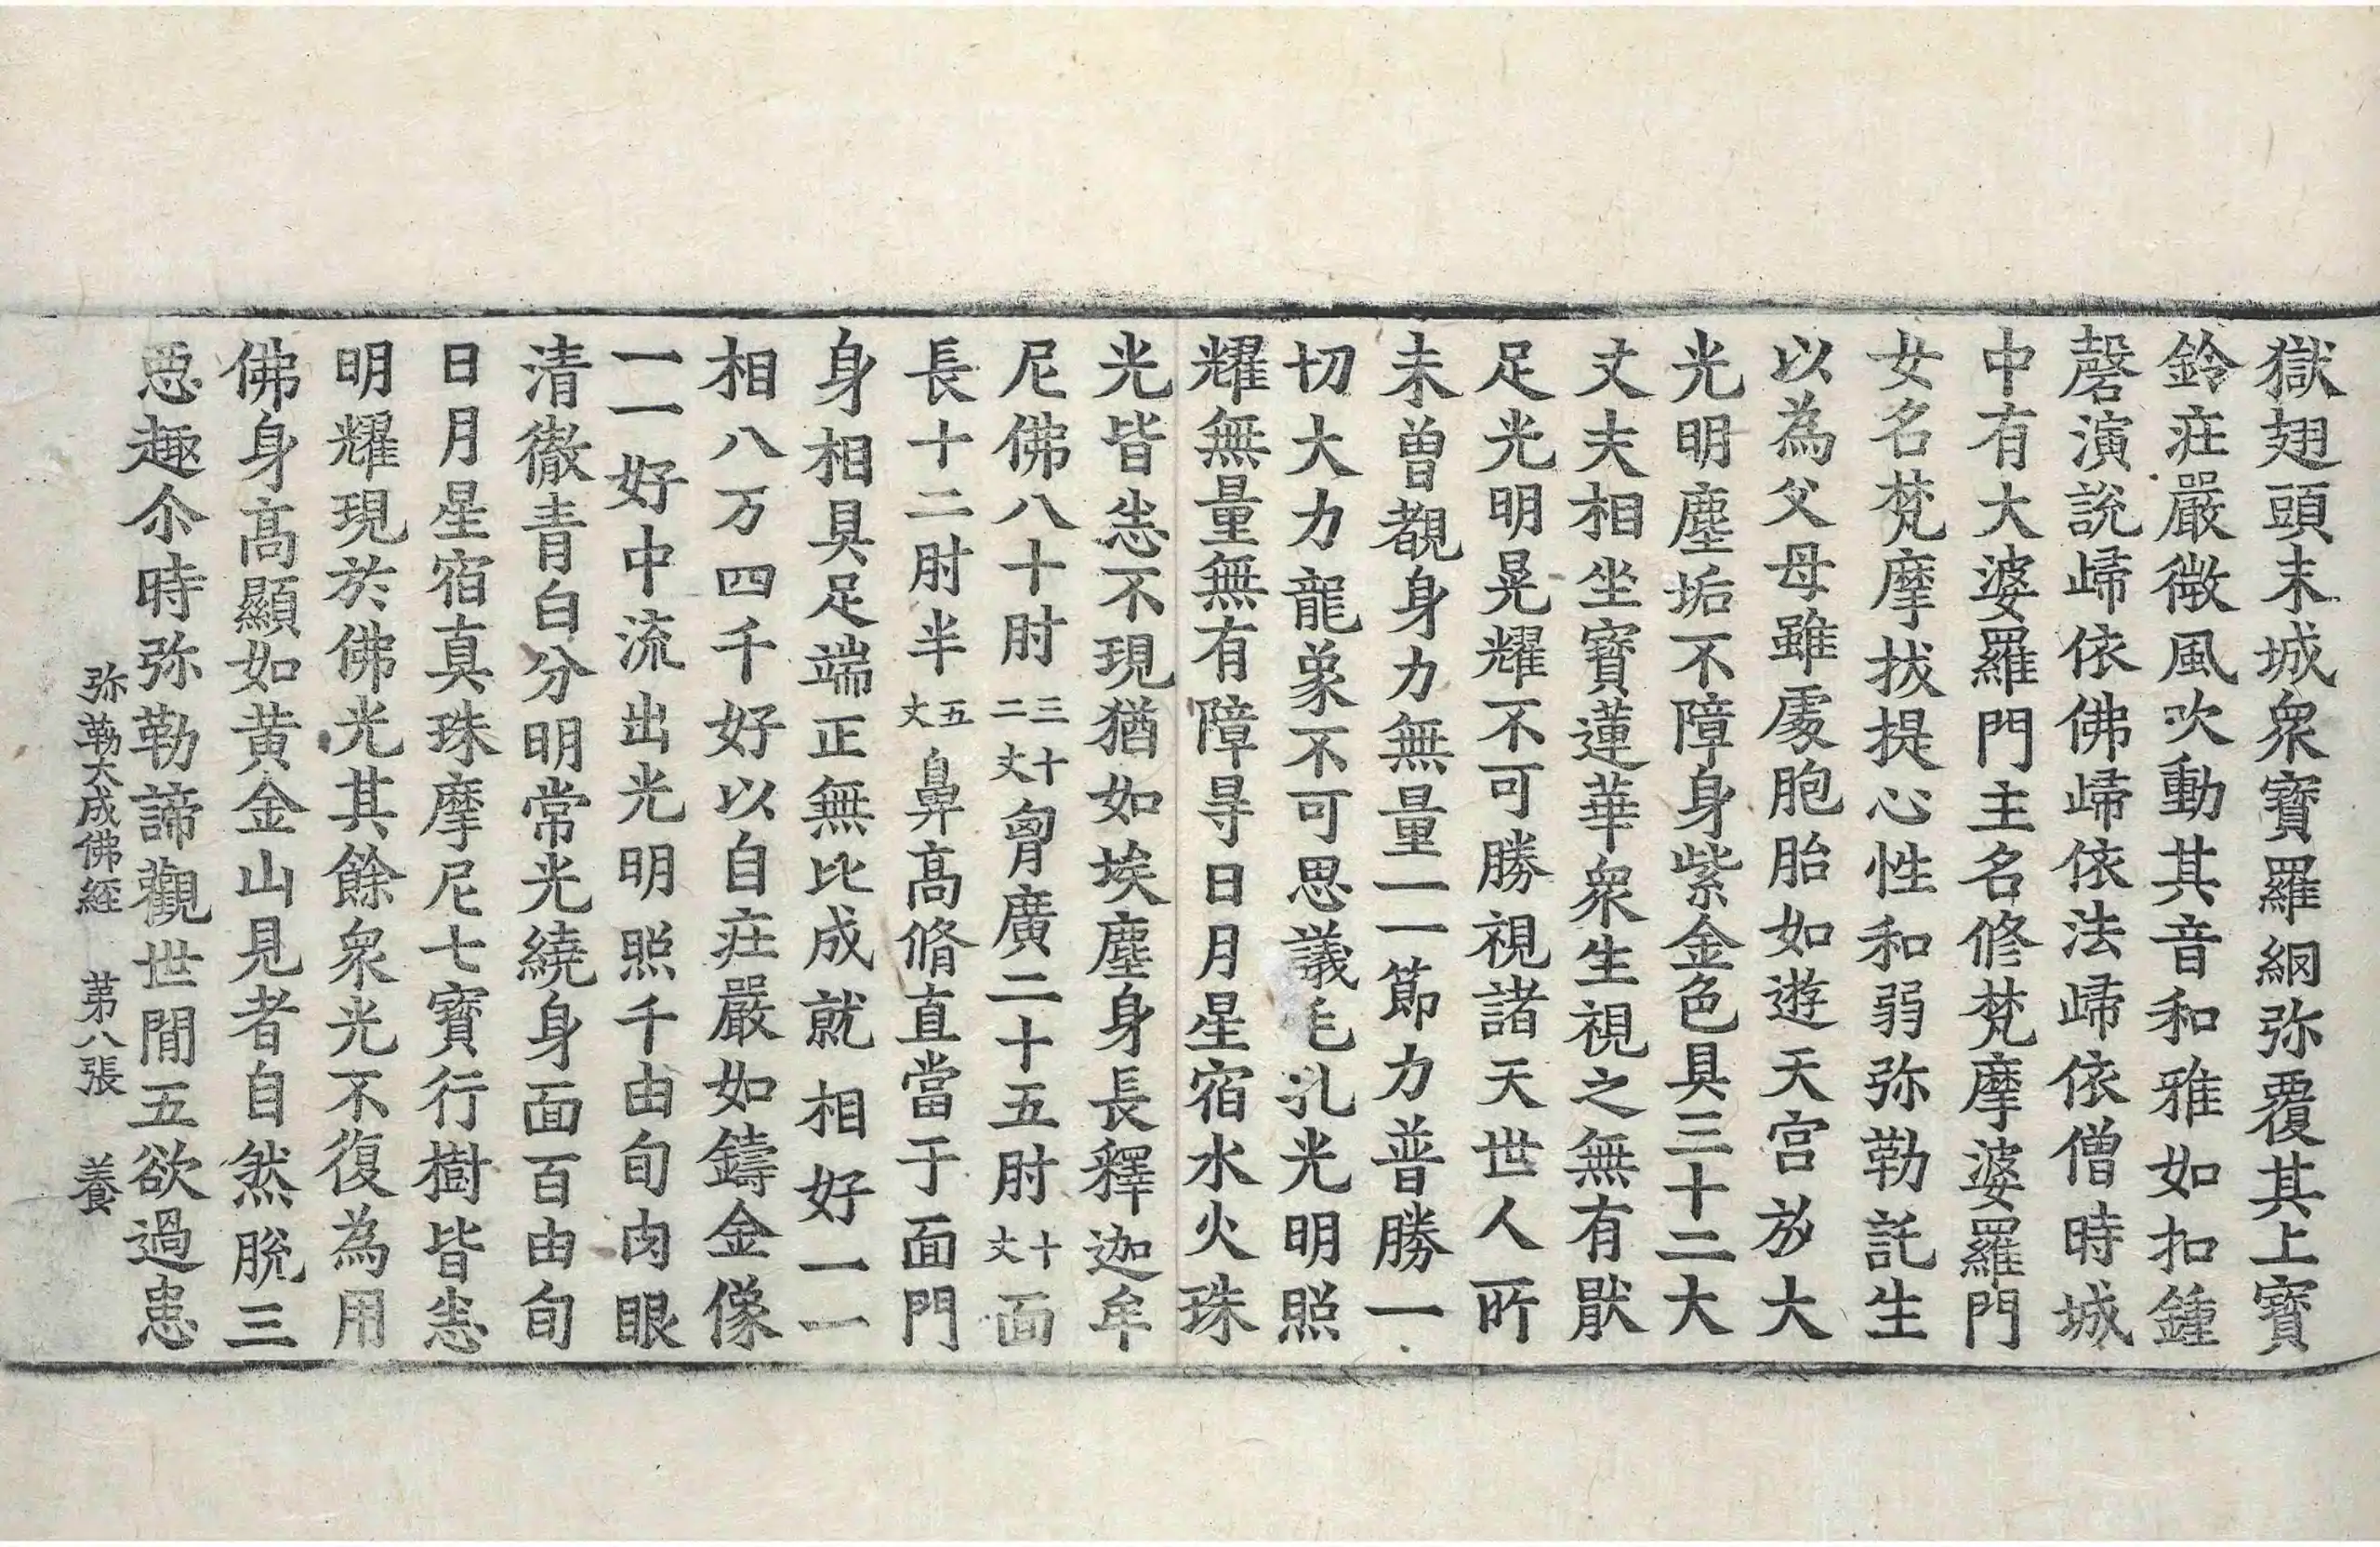 獄翅頭末城衆寶羅網弥覆其上寶
鈴莊嚴微風吹動其音和雅如扣鍾
磬演說歸依佛歸依法歸依僧時城
中有大婆羅門主名修梵摩婆羅門
女名梵摩拔提心性和弱弥勒託生
以為父母雖處胞胎如遊天宮放大
光明塵垢不障身紫金色具三十二大
丈夫相坐寶蓮華衆生視之無有猒
足光明晃耀不可勝視諸天世人所
未曾覩身力無量一一節力普勝一
切大力龍象不可思議毛孔光明照
耀無量無有障㝵日月星宿水火珠
光皆悉不現猶如埃塵身長釋迦牟
尼佛八十肘三十二丈胷廣二十五肘十丈面
長十二肘半五丈鼻高脩直當于面門
身相具足端正無比成就相好一一
相八万四千好以自莊嚴如鑄金像
一一好中流出光明照千由旬肉眼
清徹青白分明常光繞身面百由旬
日月星宿真珠摩尼七寶行樹皆悉
明耀現於佛光其餘衆光不復為用
佛身高顯如黃金山見者自然脫三
惡趣尒時弥勒諦觀世間五欲過患
弥勒大成佛經 第八張 養